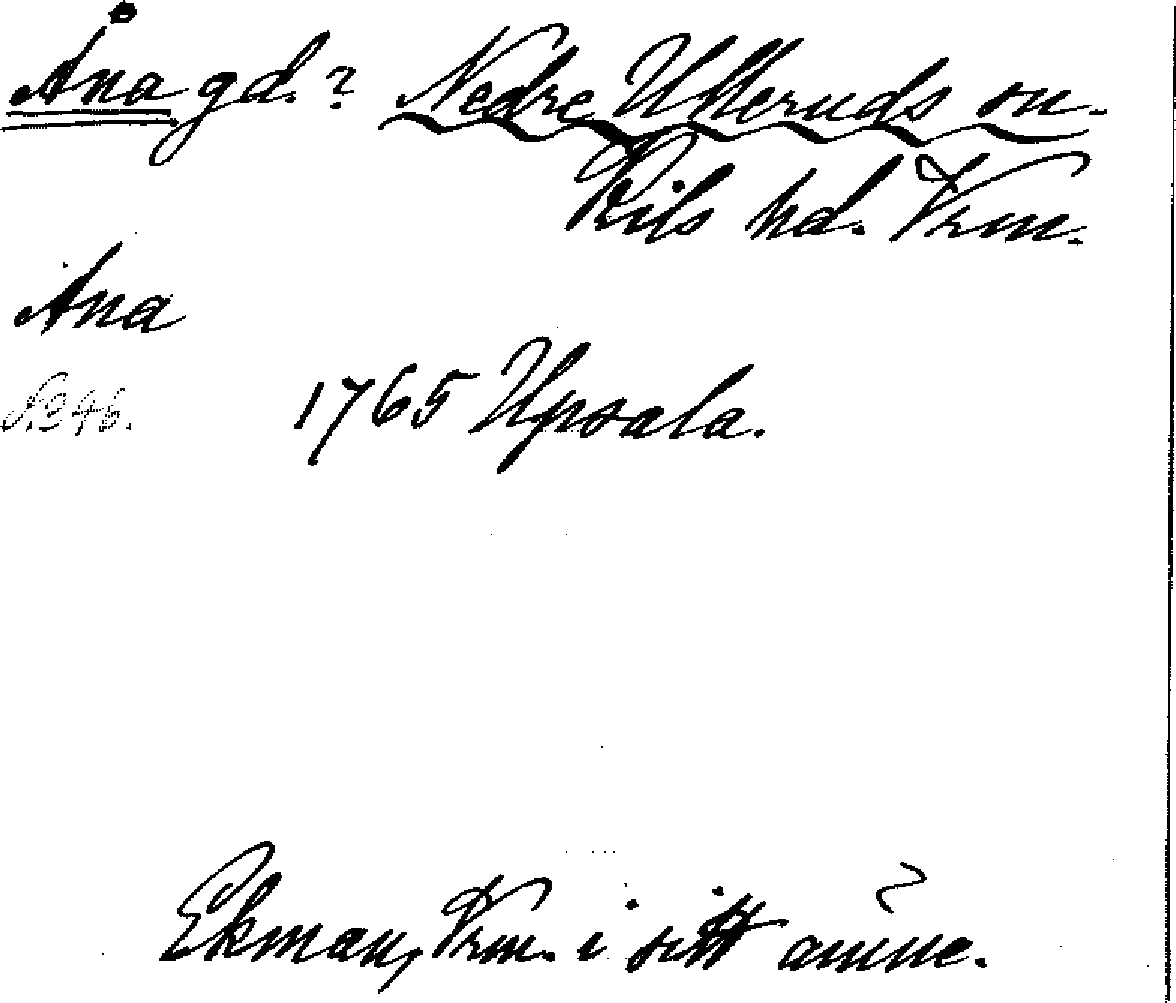 Åna gd.? Nedre Ulleruds sn.
Kils hd. Vrm.
Ana
S. 246.
1765 Upsala.
Ekman, Vrm. i sitt ämne.